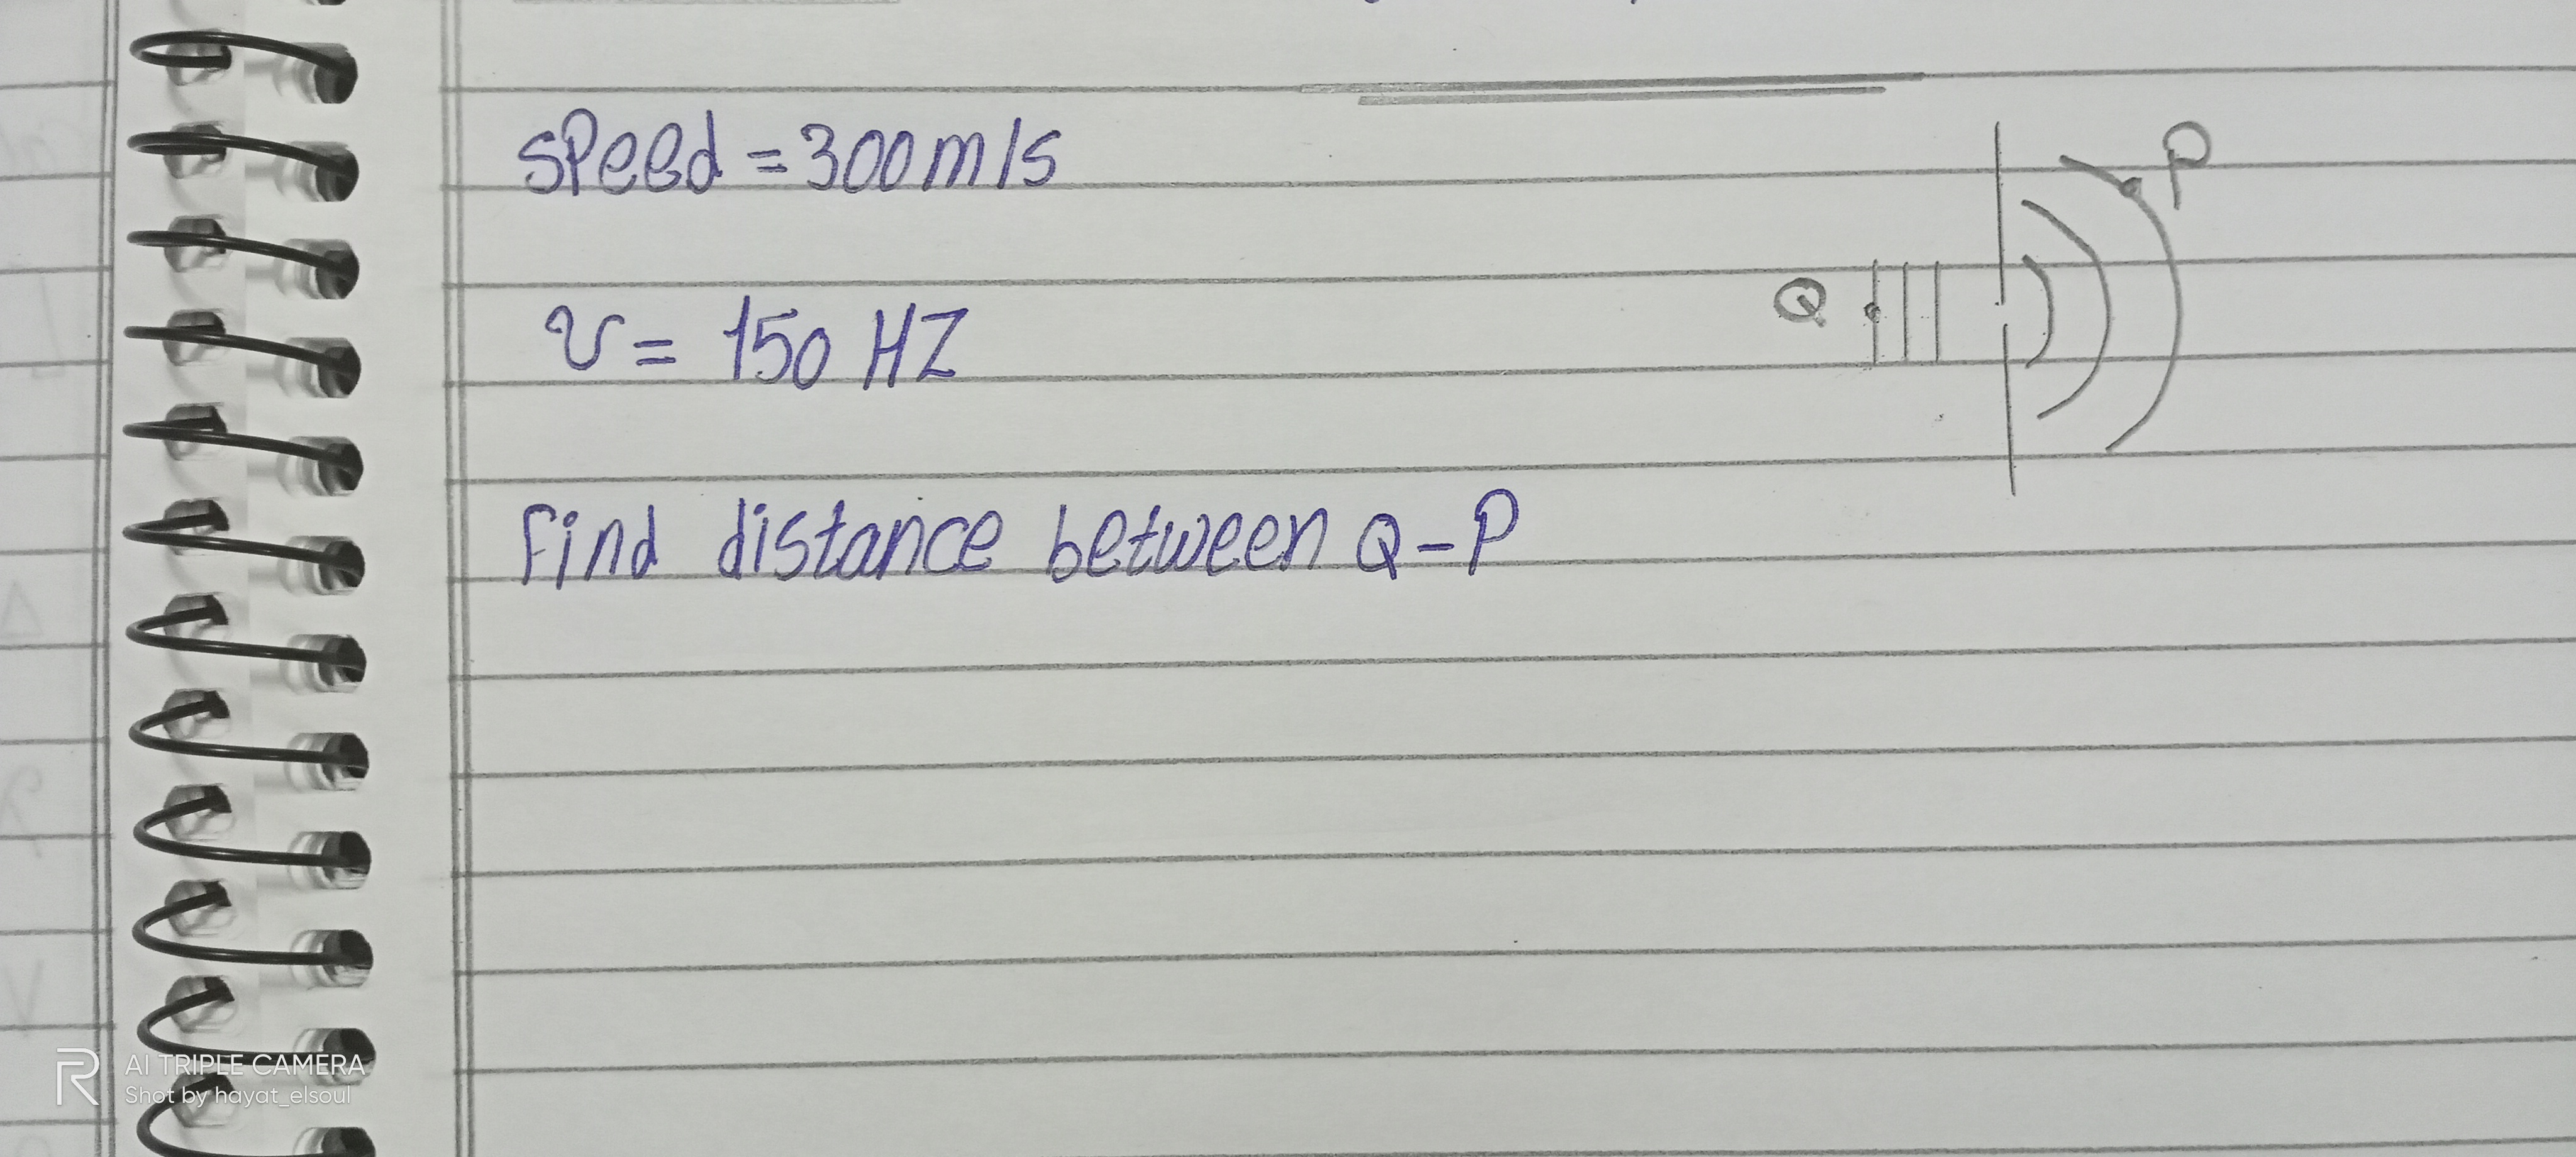 speed = 300 m/s
P
Q
υ = 150 HZ
Find distance between Q - P
AI TRIPLE CAMERA
Shot by hayat_elsoul